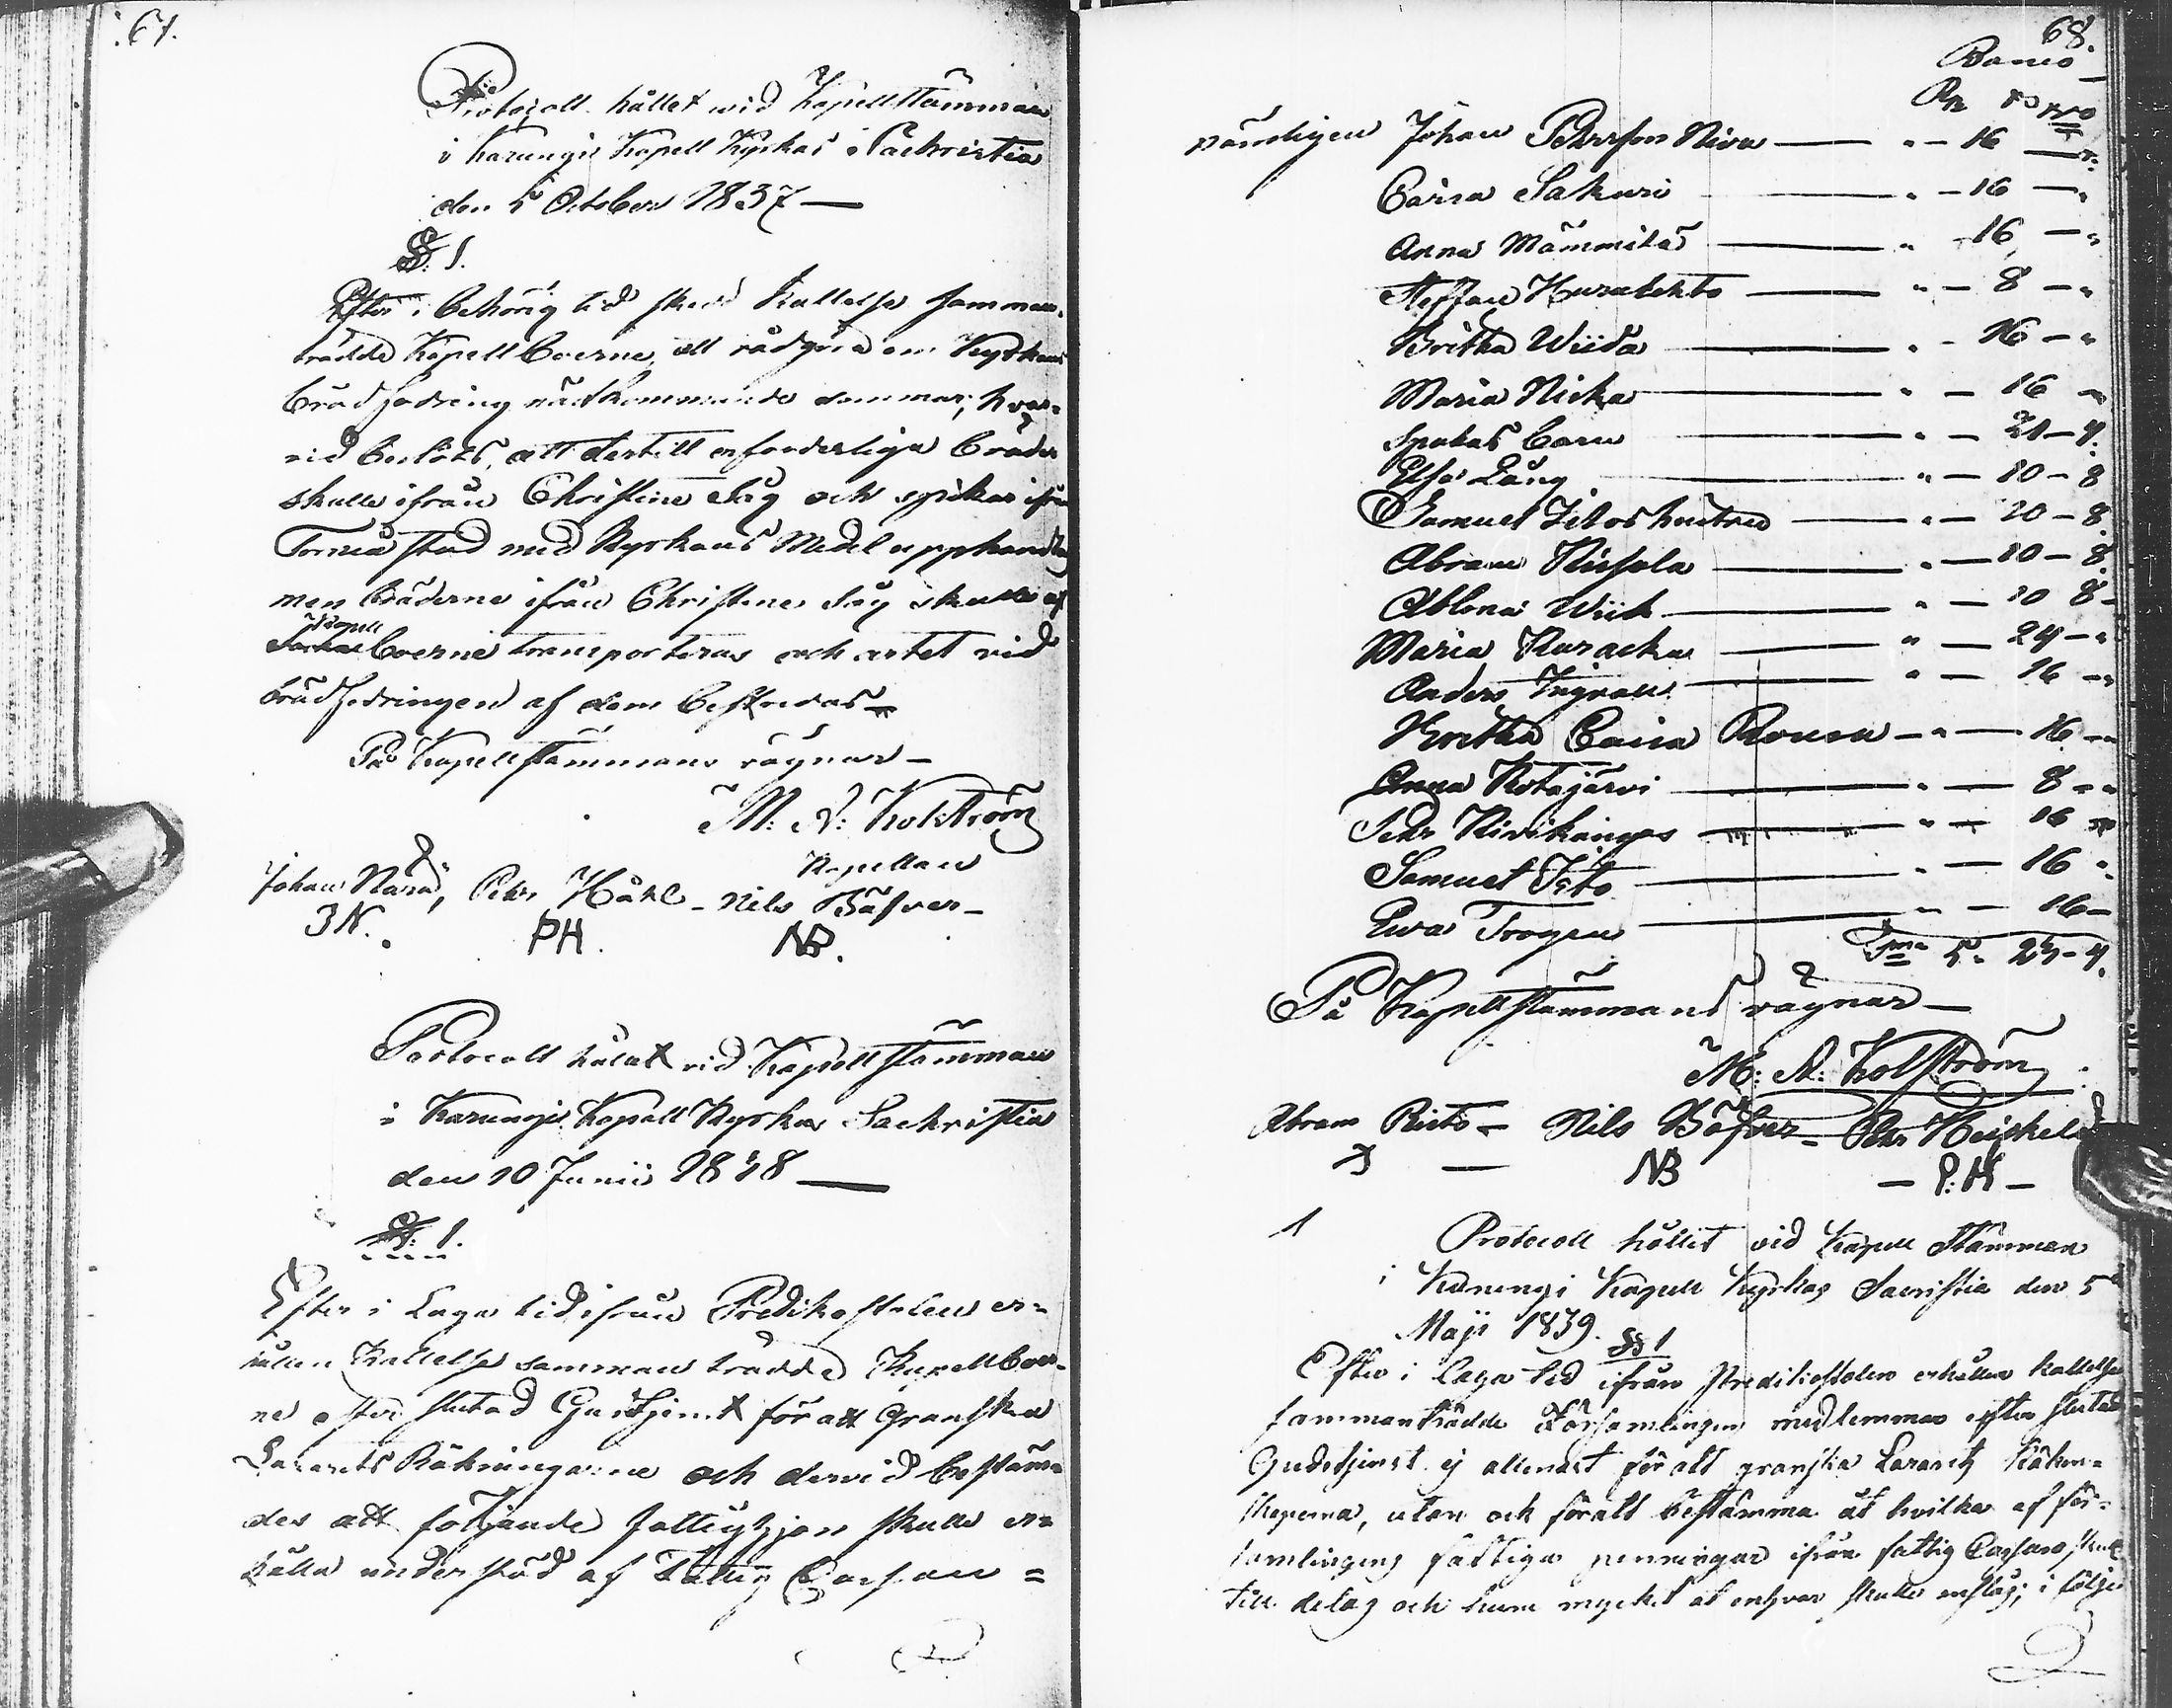 67.
Protocoll hållet wid Kapellstämman
i Karungi Kapell Kyrkas Sachristia
den 5 October 1837 —
§. 1.
Efter i behörig tid skedd Kallelse samman-
trädde Kapellboerne, att rådgöra om Kyrkans
brädfodring nästkommande sommar, hvar-
vid beslöts, att dertill erforderliga bräder
skulle ifrån Christine Såg och spikar ifrån
Torneå stad med Kyrkans Medel upphandlas
men bräderne ifrån Christine Såg skulle af
Kapell
boerne transporteras och arbetet vid
brädfodringen af dem bestridas —
På Kapellstämmans vägnar —
M: A: Kolström
Kapellan
Johan Nara, Pehr Håhl - Nils Bäfver -
JN. PH. NB.
Protocoll hållet vid Kapellstämman
i Karungi Kapell Kyrkas Sachristia
den 10 Junii 1838 —
§. 1.
Efter i Laga tid ifrån Predikostolen er-
hållen Kallelse samman trädde Kapellboer-
ne efter slutad Gudstjenst för att Granska
Lazarets Räkningarne och dervid bestäm-
des att följande fattighjon skulle er-
hålla understöd af Fattig Cassan =
68.
Banco
Rd s rst
nämligen Johan Pehrsson Niva — " — 16 — "
Caisa Sakari — " — 16 — "
Anna Mämmilä — " — 16 — "
Steffan Huralehto — " — 8 — "
Britha Wiida — " — 16 — "
Maria Niska — " — 16 — "
Spakas barn — " — 21 — 4.
Elsa Lång — " — 10 — 8
Samuel Zitos hustru — " — 10 — 8
Abram Kussola — " — 10 — 8
Ablona Wiik — " — 10 8 -
Maria Kuracka — " — 24 — "
Anders Yngvall — " — 16 — "
Britha Caisa Rousu — " — 16 — "
Anna Kotajärvi — " — 8 — "
Pehr Kivikangas — " — 16 — "
Samuel Zito — " — 16 "
Ewa Trogen — " — 16 —
Sma 5. 25 - 4.
På Kapellstämmans vägnar —
M: A: Kolström
Abram Risto - Nils Bäfver - Pehr Heiskel
— NB — P: H —
1
Protocoll hållet vid Kapell Stämman
i Karungi Kapell Kyrkas Sacristia den 5
Maji 1839. § 1
Efter i laga tid ifrån Predikostolen erhållen kallelse
sammanträdde Församlingens medlemmar efter slutad
Gudstjenst ej allenast för att granska Lazarets Räken-
skaperna, utan och för att bestämma åt hvilka af för-
samlingens fattiga penningar ifrån fattig Cassan skulle
till delas och huru mycket åt enhvar skulle anslås; i följe